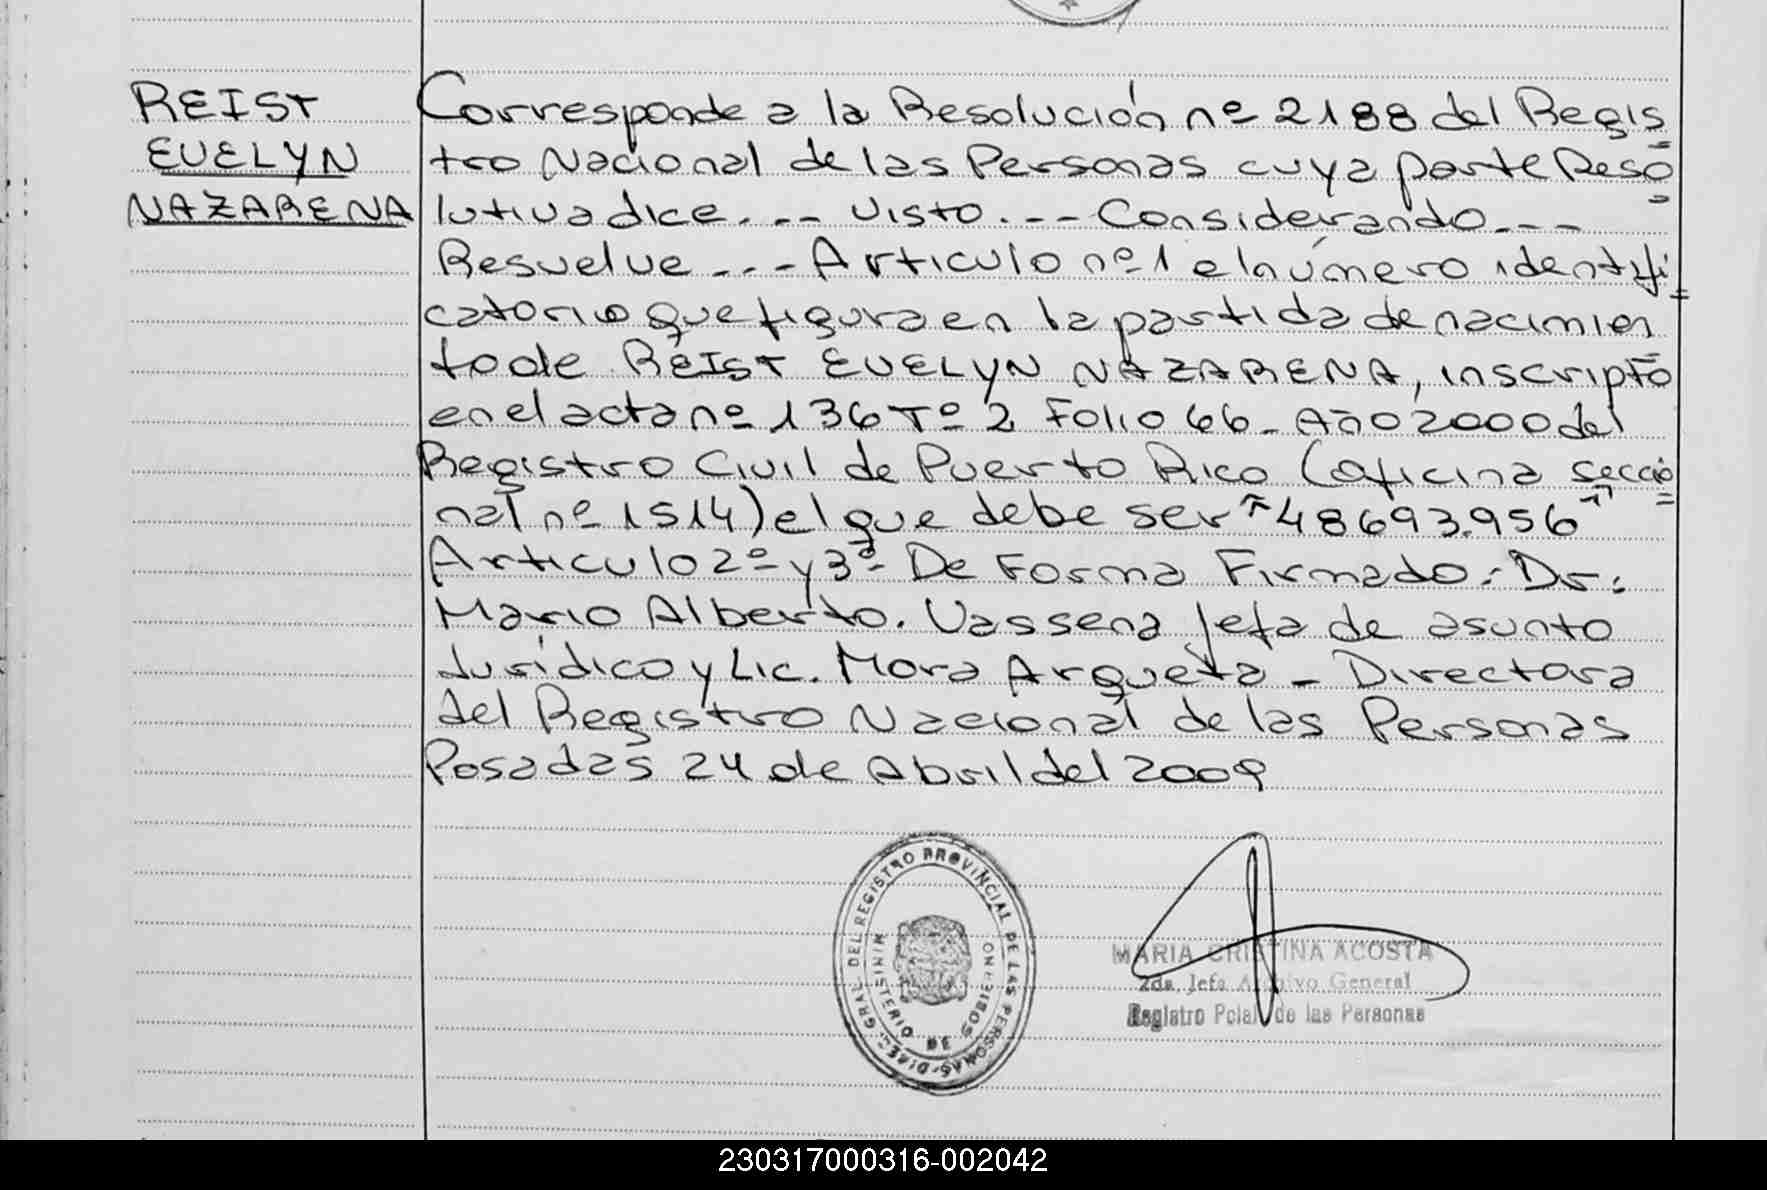 REIST
EVELYN
NAZARENA
Corresponde a la Resolución nº 2188 del Regis
tro Nacional de las Personas cuya parte Reso
lutiva dice... -- Visto. --- Considerando. ---
Resuelve ... - Articulo nº 1 el número identifi
catorio que figura en la partida de nacimien
to de REIST EVELYN NAZARENA, inscripto
en el acta nº 136 Tº 2 Folio 66 - Año 2000 del
Registro Civil de Puerto Rico (oficina seccio
nal nº 1514) el que debe ser "48693.956"
Articulo 2º y 3º - De Forma Firmado: Dr:
Mario Alberto. Vassena Jefa de asunto
Jurídico y Lic. Mora Arqueta - Directora
del Registro Nacional de las Personas
Posadas 24 de Abril del 2009
DIREC. GRAL. DEL REGISTRO PROVINCIAL DE LAS PERSONAS
MINISTERIO DE GOBIERNO
MARIA CRISTINA ACOSTA
2da. Jefa Archivo General
Registro Pcial de las Personas
230317000316-002042